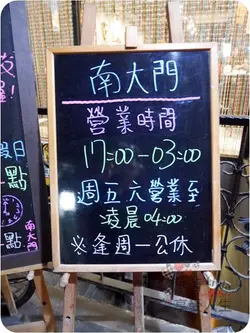 南大門
營業時間
17:00-03:00
週五六營業至
凌晨04:00
※逢週一公休
日
點
點
南大門